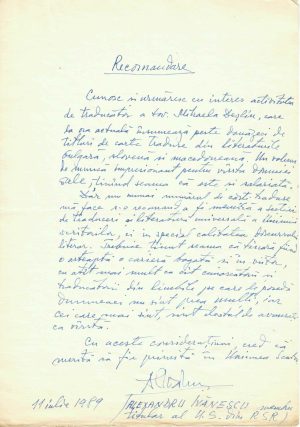 Recomandare
Cunosc și urmăresc cu interes activitatea
de traducător a tov. Mihaela Deșliu, care
la ora actuală însumează peste douăzeci de
titluri de carte traduse din literaturile
bulgară, slovenă și macedoneană. Un volum
de muncă impresionant pentru vîrsta domniei
sale, ținînd seama că este și salariată.
Dar nu numai numărul de cărți traduse
mă face s-o recomand a fi membră a secției
de traduceri și literatură universală a Uniunii
scriitorilor, ci în special calitatea discursului
literar. Trebuie ținut seama că tînără fiind
o așteaptă o carieră bogată și în viitor,
cu atît mai mult cu cît cunoscători și
traducători din limbile pe care le posedă
dumneaei nu sînt prea mulți, iar
cei care mai sînt, sînt destul de avansați
ca vîrstă.
Cu aceste considerațiuni, cred că
merită să fie primită în Uniunea Scriit.
11 iulie 1989
ALEXANDRU IVĂNESCU membru
titular al U.S. din R.S.R.